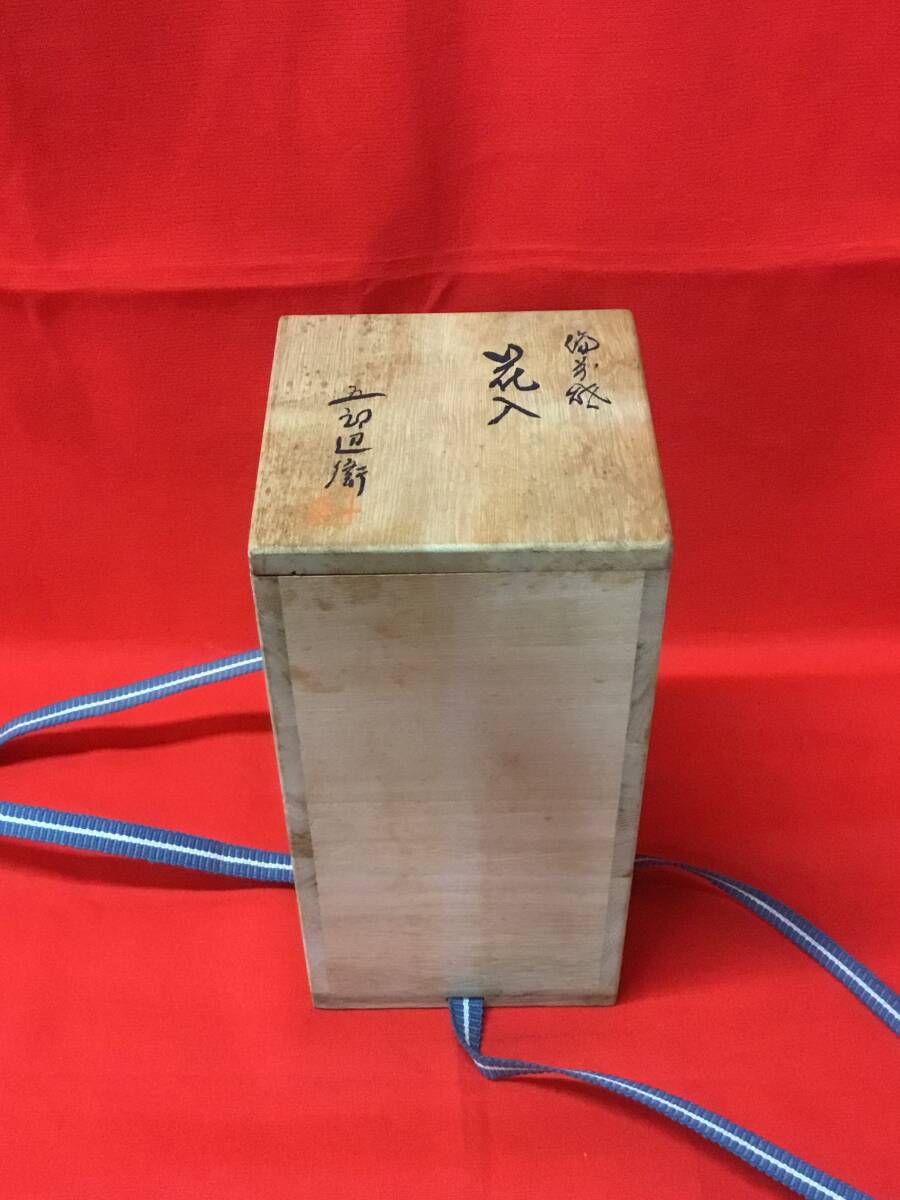 備前焼
花入
五郎辺衛